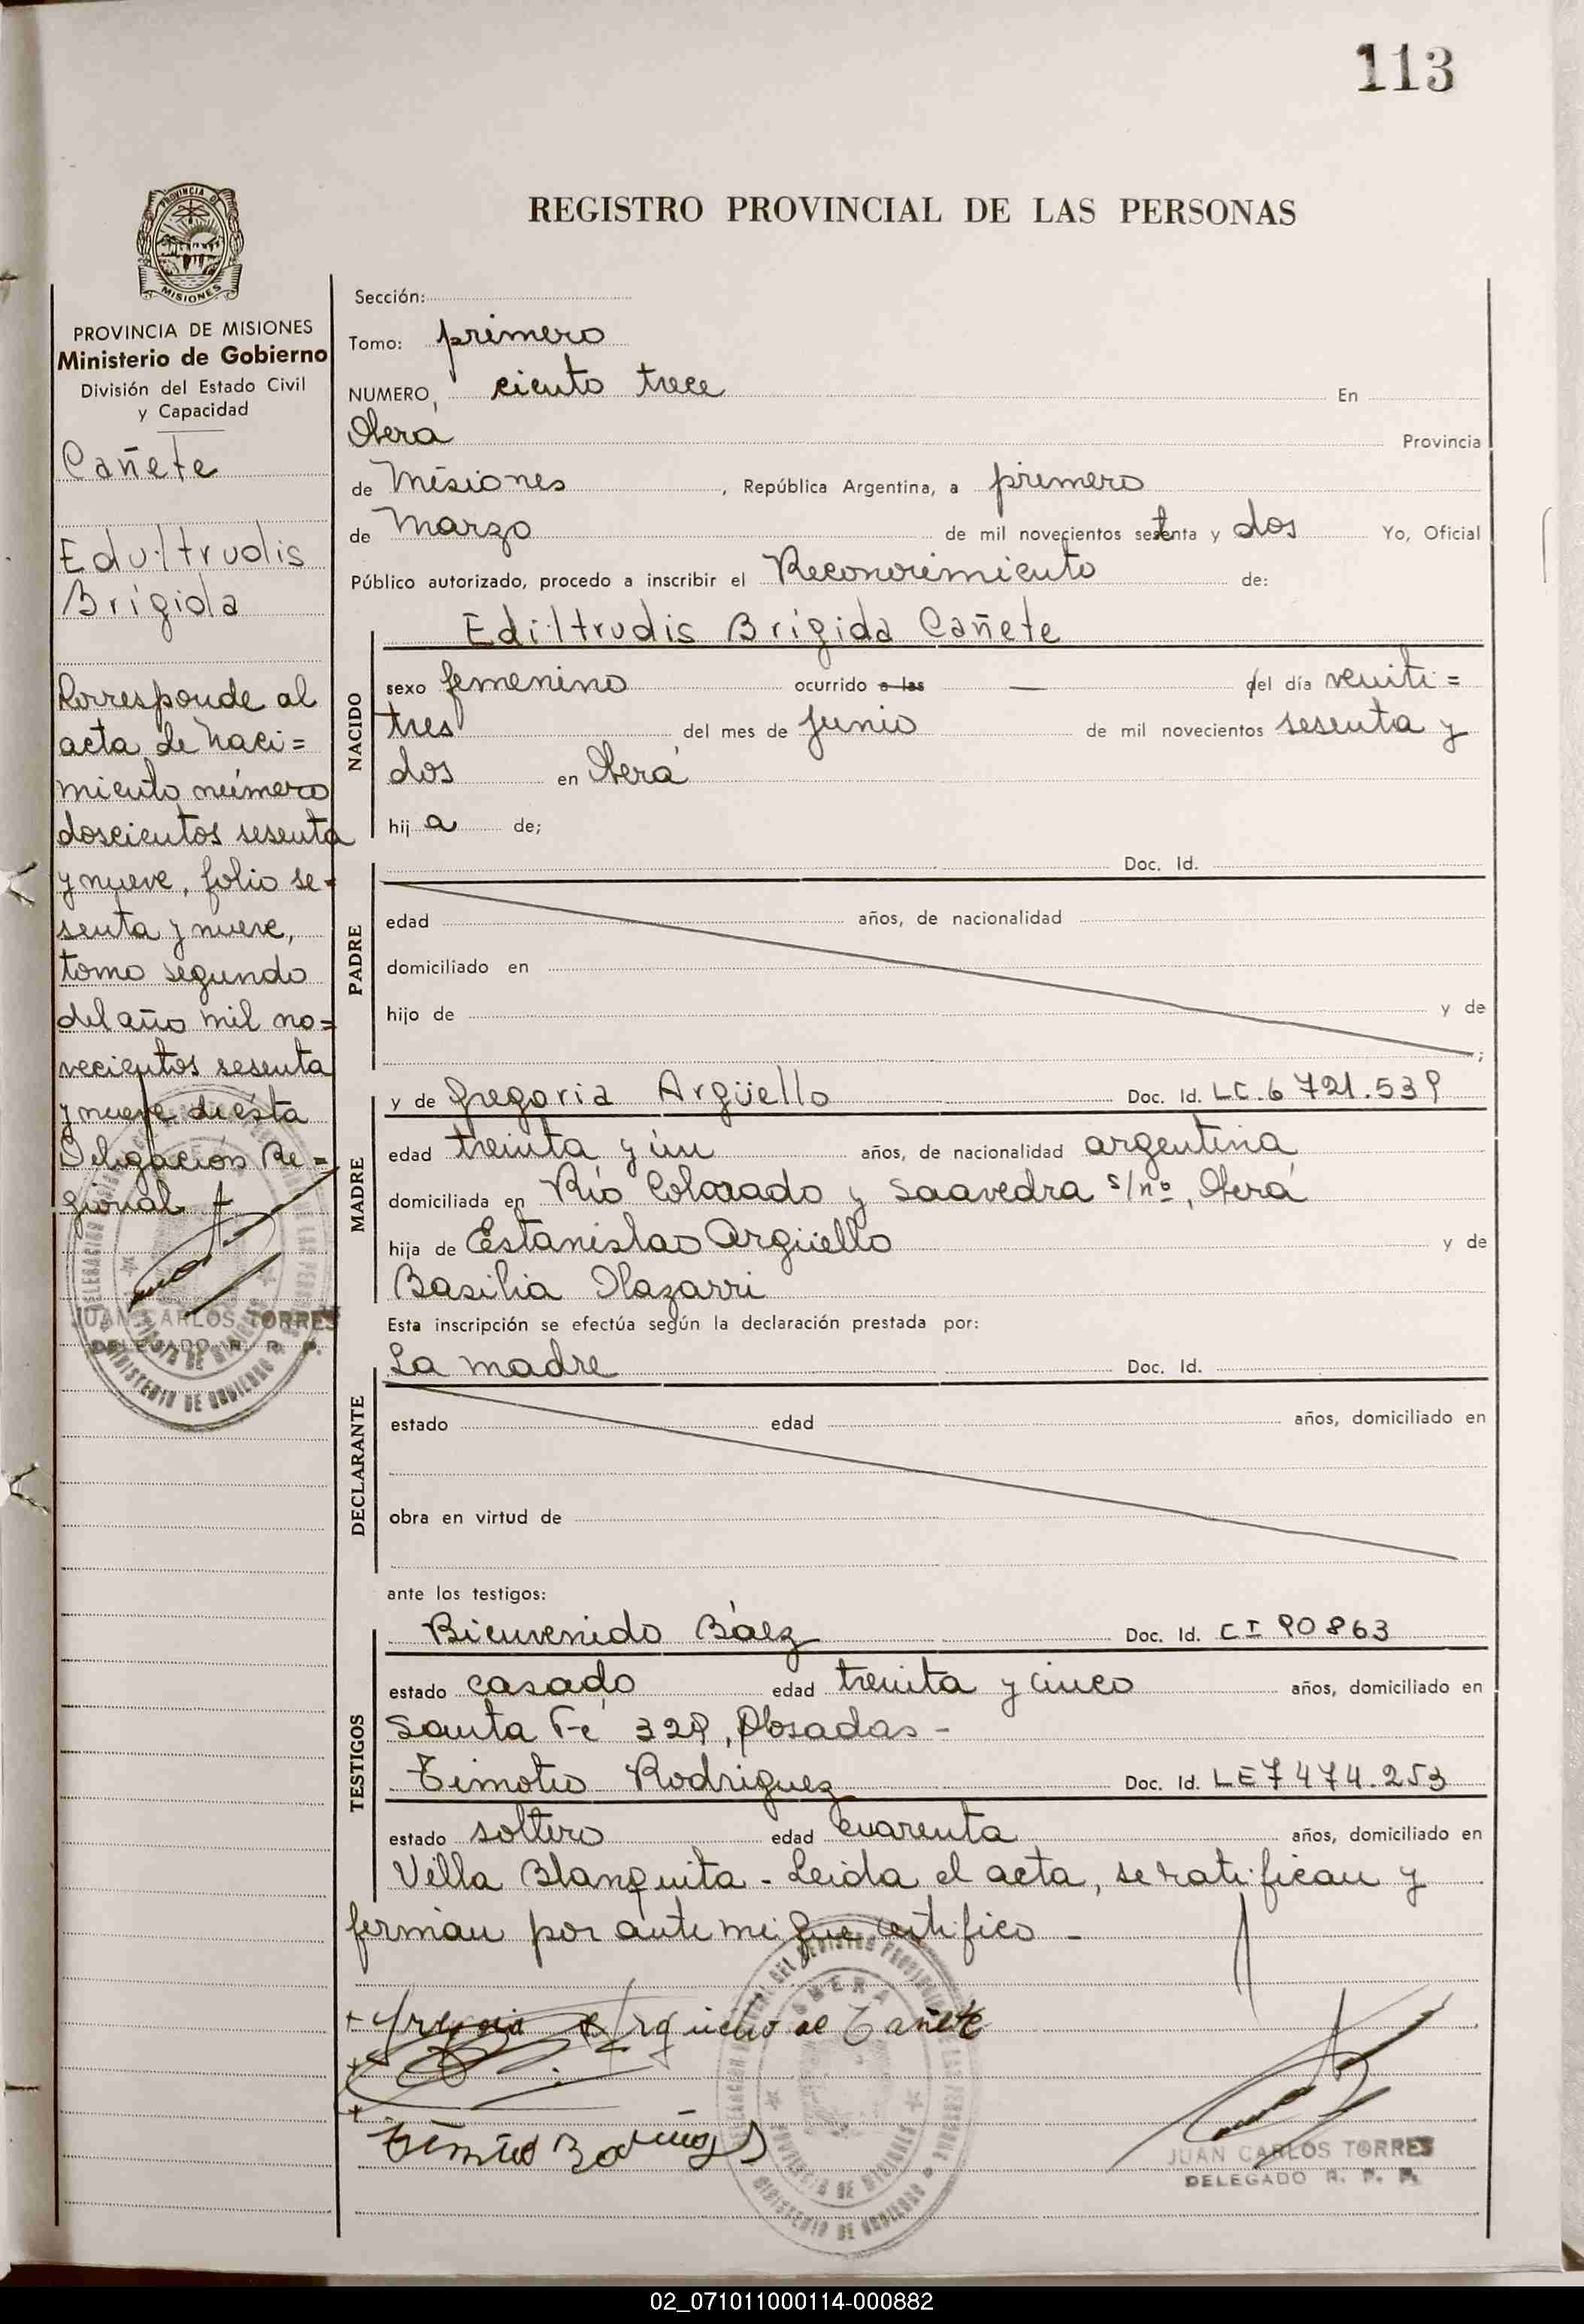 113
REGISTRO PROVINCIAL DE LAS PERSONAS
PROVINCIA DE MISIONES
Ministerio de Gobierno
División del Estado Civil
y Capacidad
Cañete
Ediltrudis
Brígida
Corresponde al
acta de naci=
miento número
doscientos sesenta
y nueve, folio se=
senta y nueve,
tomo segundo
del año mil no=
vecientos sesenta
y nueve de ésta
Delegación Re=
gional.
JUAN CARLOS TORRES
DELEGADO R. P. P.
Sección:
Tomo: primero
NUMERO, ciento trece En
Oberá Provincia
de Misiones, República Argentina, a primero
de Marzo de mil novecientos setenta y dos Yo, Oficial
Público autorizado, procedo a inscribir el Reconocimiento de:
NACIDO
Ediltrudis Brígida Cañete
sexo femenino ocurrido a las — del día veinti=
tres del mes de junio de mil novecientos sesenta y
dos en Oberá
hij a de;
PADRE
Doc. Id.
edad años, de nacionalidad
domiciliado en
hijo de y de
;
MADRE
y de Gregoria Argüello Doc. Id. LC. 6 721.539
edad treinta y ún años, de nacionalidad argentina
domiciliada en Río Colorado y Saavedra s/nº, Oberá
hija de Estanislao Argüello y de
Basilia Olazarri
Esta inscripción se efectúa según la declaración prestada por:
DECLARANTE
La madre Doc. Id.
estado edad años, domiciliado en
obra en virtud de
ante los testigos:
TESTIGOS
Bienvenido Báez Doc. Id. CI 90863
estado casado edad treinta y cinco años, domiciliado en
Santa Fé 329, Posadas -
Timoteo Rodriguez Doc. Id. LE 7 474.253
estado soltero edad cuarenta años, domiciliado en
Villa Blanquita - Leida el acta, se ratifican y
firman por ante mi que certifico -
Gregoria Arguello de Cañete
JUAN CARLOS TORRES
DELEGADO R. P. P.
02_071011000114-000882